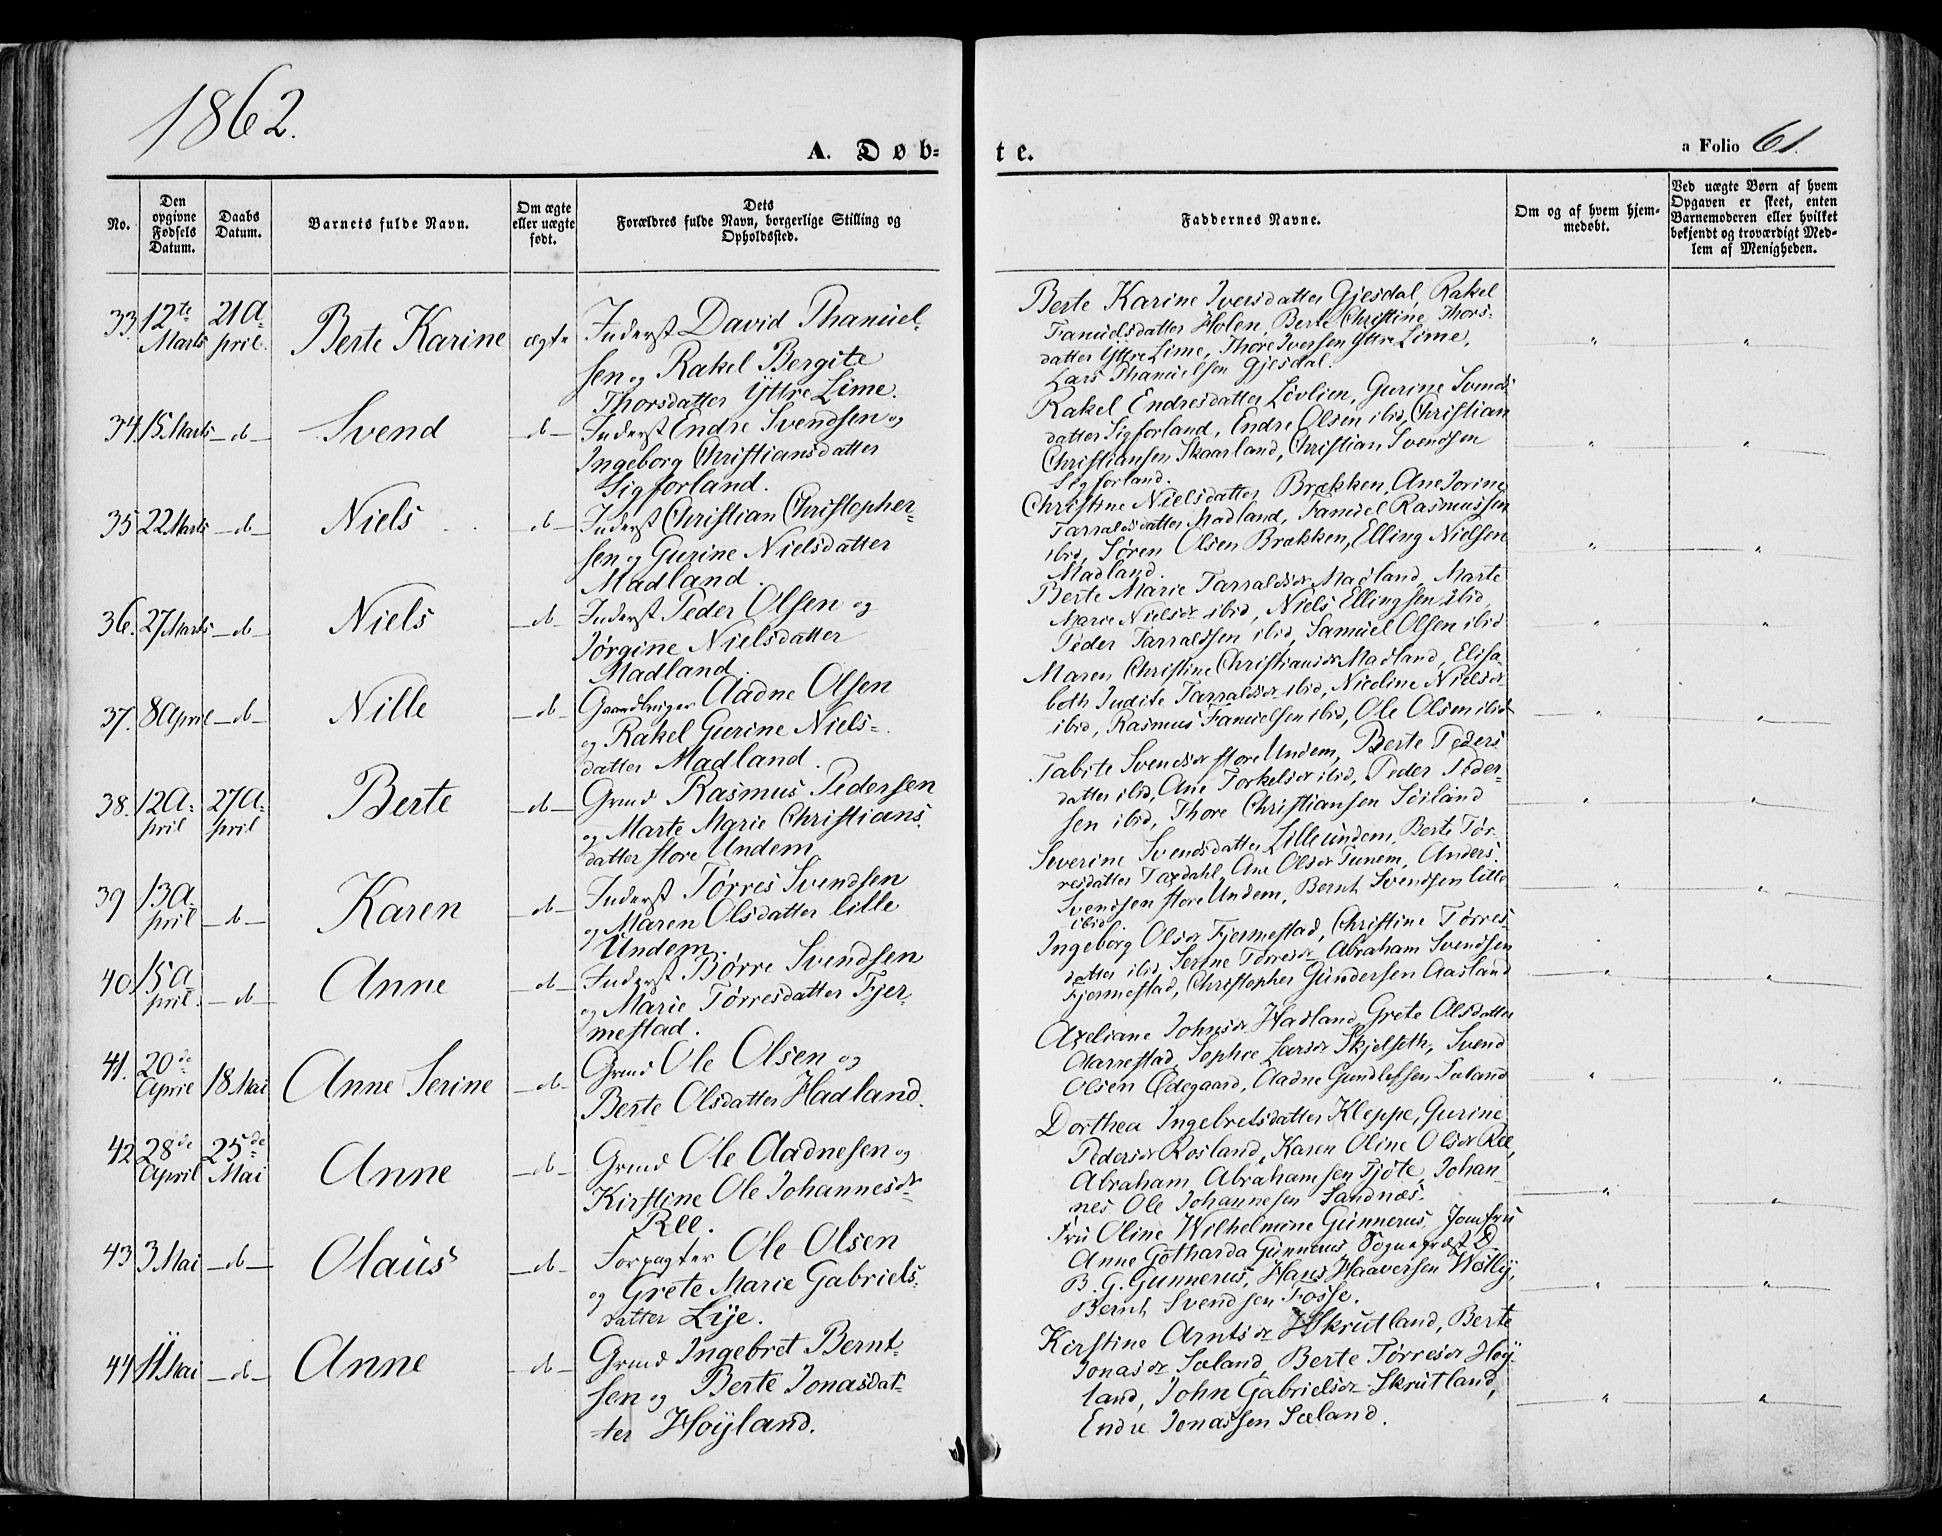 1862.
A. Døb-
te.
a Folio 61.
No.
Den opgivne Fødsels Datum.
Daabs Datum.
Barnets fulde Navn.
Om ægte eller uægte født.
Dets Forældres fulde Navn, borgerlige Stilling og Opholdssted.
Faddernes Navne.
Om og af hvem hjemmedøbt.
Ved uægte Børn af hvem Opgaven er skeet, enten Barnemoderen eller hvilket bekjendt og troværdigt Medlem af Menigheden.
33. 12te Marts 21 April. Berte Karine ægte
Inderst David Thanüel-
sen og Rakel Bergite
Thorsdatter Yttre Lime.
Berte Karine Iversdatter Gjesdal, Rakel
Fanüelsdatter Holen, Berte Christine Thors-
datter Yttre Lime, Thore Iversen Yttre Lime,
Lars Thanüelsen Gjesdal.
" "
34 15 Marts -d- Svend -d-
Inderst Endre Svendsen og
Ingeborg Christiansdatter
Sigforland.
Rakel Endresdatter Lövlien, Gurine Svends-
datter Sigforland, Endre Olsen ibid, Christian
Christiansen Skaarland, Christian Svendsen
Sigforland.
" "
35 22 Marts -d- Niels -d-
Inderst Christian Christopher-
sen og Gurine Nielsdatter
Madland.
Christine Nielsdatter Brækken, Ane Jorine
Tarraldsdatter Madland, Fanüel Rasmussen
ibid, Søren Olsen Brækken, Elling Nielsen
Madland.
" "
36. 27 Marts -d- Niels -d-
Inderst Peder Olsen og
Jørgine Nielsdatter
Madland.
Berte Marie Tarraldsdr Madland, Marte
Marie Nielsdr ibid, Niels Ellingsen ibid
Peder Tarraldsen ibid, Samüel Olsen ibid
" "
37. 8 April -d- Nille -d-
Gaardbruger Aadne Olsen
og Rakel Gurine Niels-
datter Madland.
Maren Christine Christiansdr Madland, Elisa-
beth Judite Tarraldsdr ibid, Nicoline Nielsdr
ibid, Rasmus Fanüelsen ibid, Ole Olsen ibid
" "
38. 12 April 27 April Berte -d-
Grmd Rasmus Pedersen
og Marte Marie Christians-
datter store Undem
Tabite Svendsdr store Undem, Berte Peders
datter ibid, Ane Torkelsdr ibid, Peder Peder-
sen ibid, Thore Christiansen Söiland
" "
39 13 April -d- Karen -d-
Inderst Törres Svendsen
og Maren Olsdatter lille
Undem.
Severine Svendsdatter Lilleündem, Berte Tör-
resdatter Taxdahl, Ane Olsdr Tunem, Anders
Svendsen store Undem, Bernt Svendsen lille
ibid.
" "
40 15 April. -d- Anne -d-
Inderst Börre Svendsen
og Marie Törresdatter Fjer-
mestad.
Ingeborg Olsdr Fjermestad, Christine Törres-
datter ibid, Serine Törresdr Abraham Svendsen
Fjermestad, Christopher Gündersen Aasland
" "
41. 20de April 18 Mai Anne Serine -d-
Grmd Ole Olsen og
Berte Olsdatter Hadland.
Axeliane Johnsdr Hadland, Grete Olsdatter
Aarrestad, Sophie Larsdr Skjelseth, Svend
Olsen Ödegaard, Aadne Gundlefsen Sæland
" "
42 28de April 25de Mai Anne -d-
Grmd Ole Aadnesen og
Kirstine Ole Johannesdr
Ree.
Dorthea Ingebretsdatter Kleppe, Gurine
Pedersdr Rosland, Karen Oline Olsdr Ree,
Abraham Abrahamsen Fjöte, Johan-
nes Ole Johannesen Sandnæs.
" "
43 3 Mai -d- Olaüs -d-
Forpagter Ole Olsen
og Grete Marie Gabriels-
datter Lye.
Frü Oline Wilhelmine Günnerus, Jomfrü
Anne Gotharda Günnerus, Sognepræst D
B. G. Gunnerus, Hans Haaversen
Bernt Svendsen Fosse.
" "
44 11 Mai -d- Anne -d-
Grmd Ingebret Bernt-
sen og Berte Jonasdat-
ter Høyland.
Kirstine Arntsdr Skrütland, Berte
Jonasdr Sæland, Berte Törresdr Høy-
land, John Gabrielsdr Skrütland,
Endre Jonassen Sæland.
" "